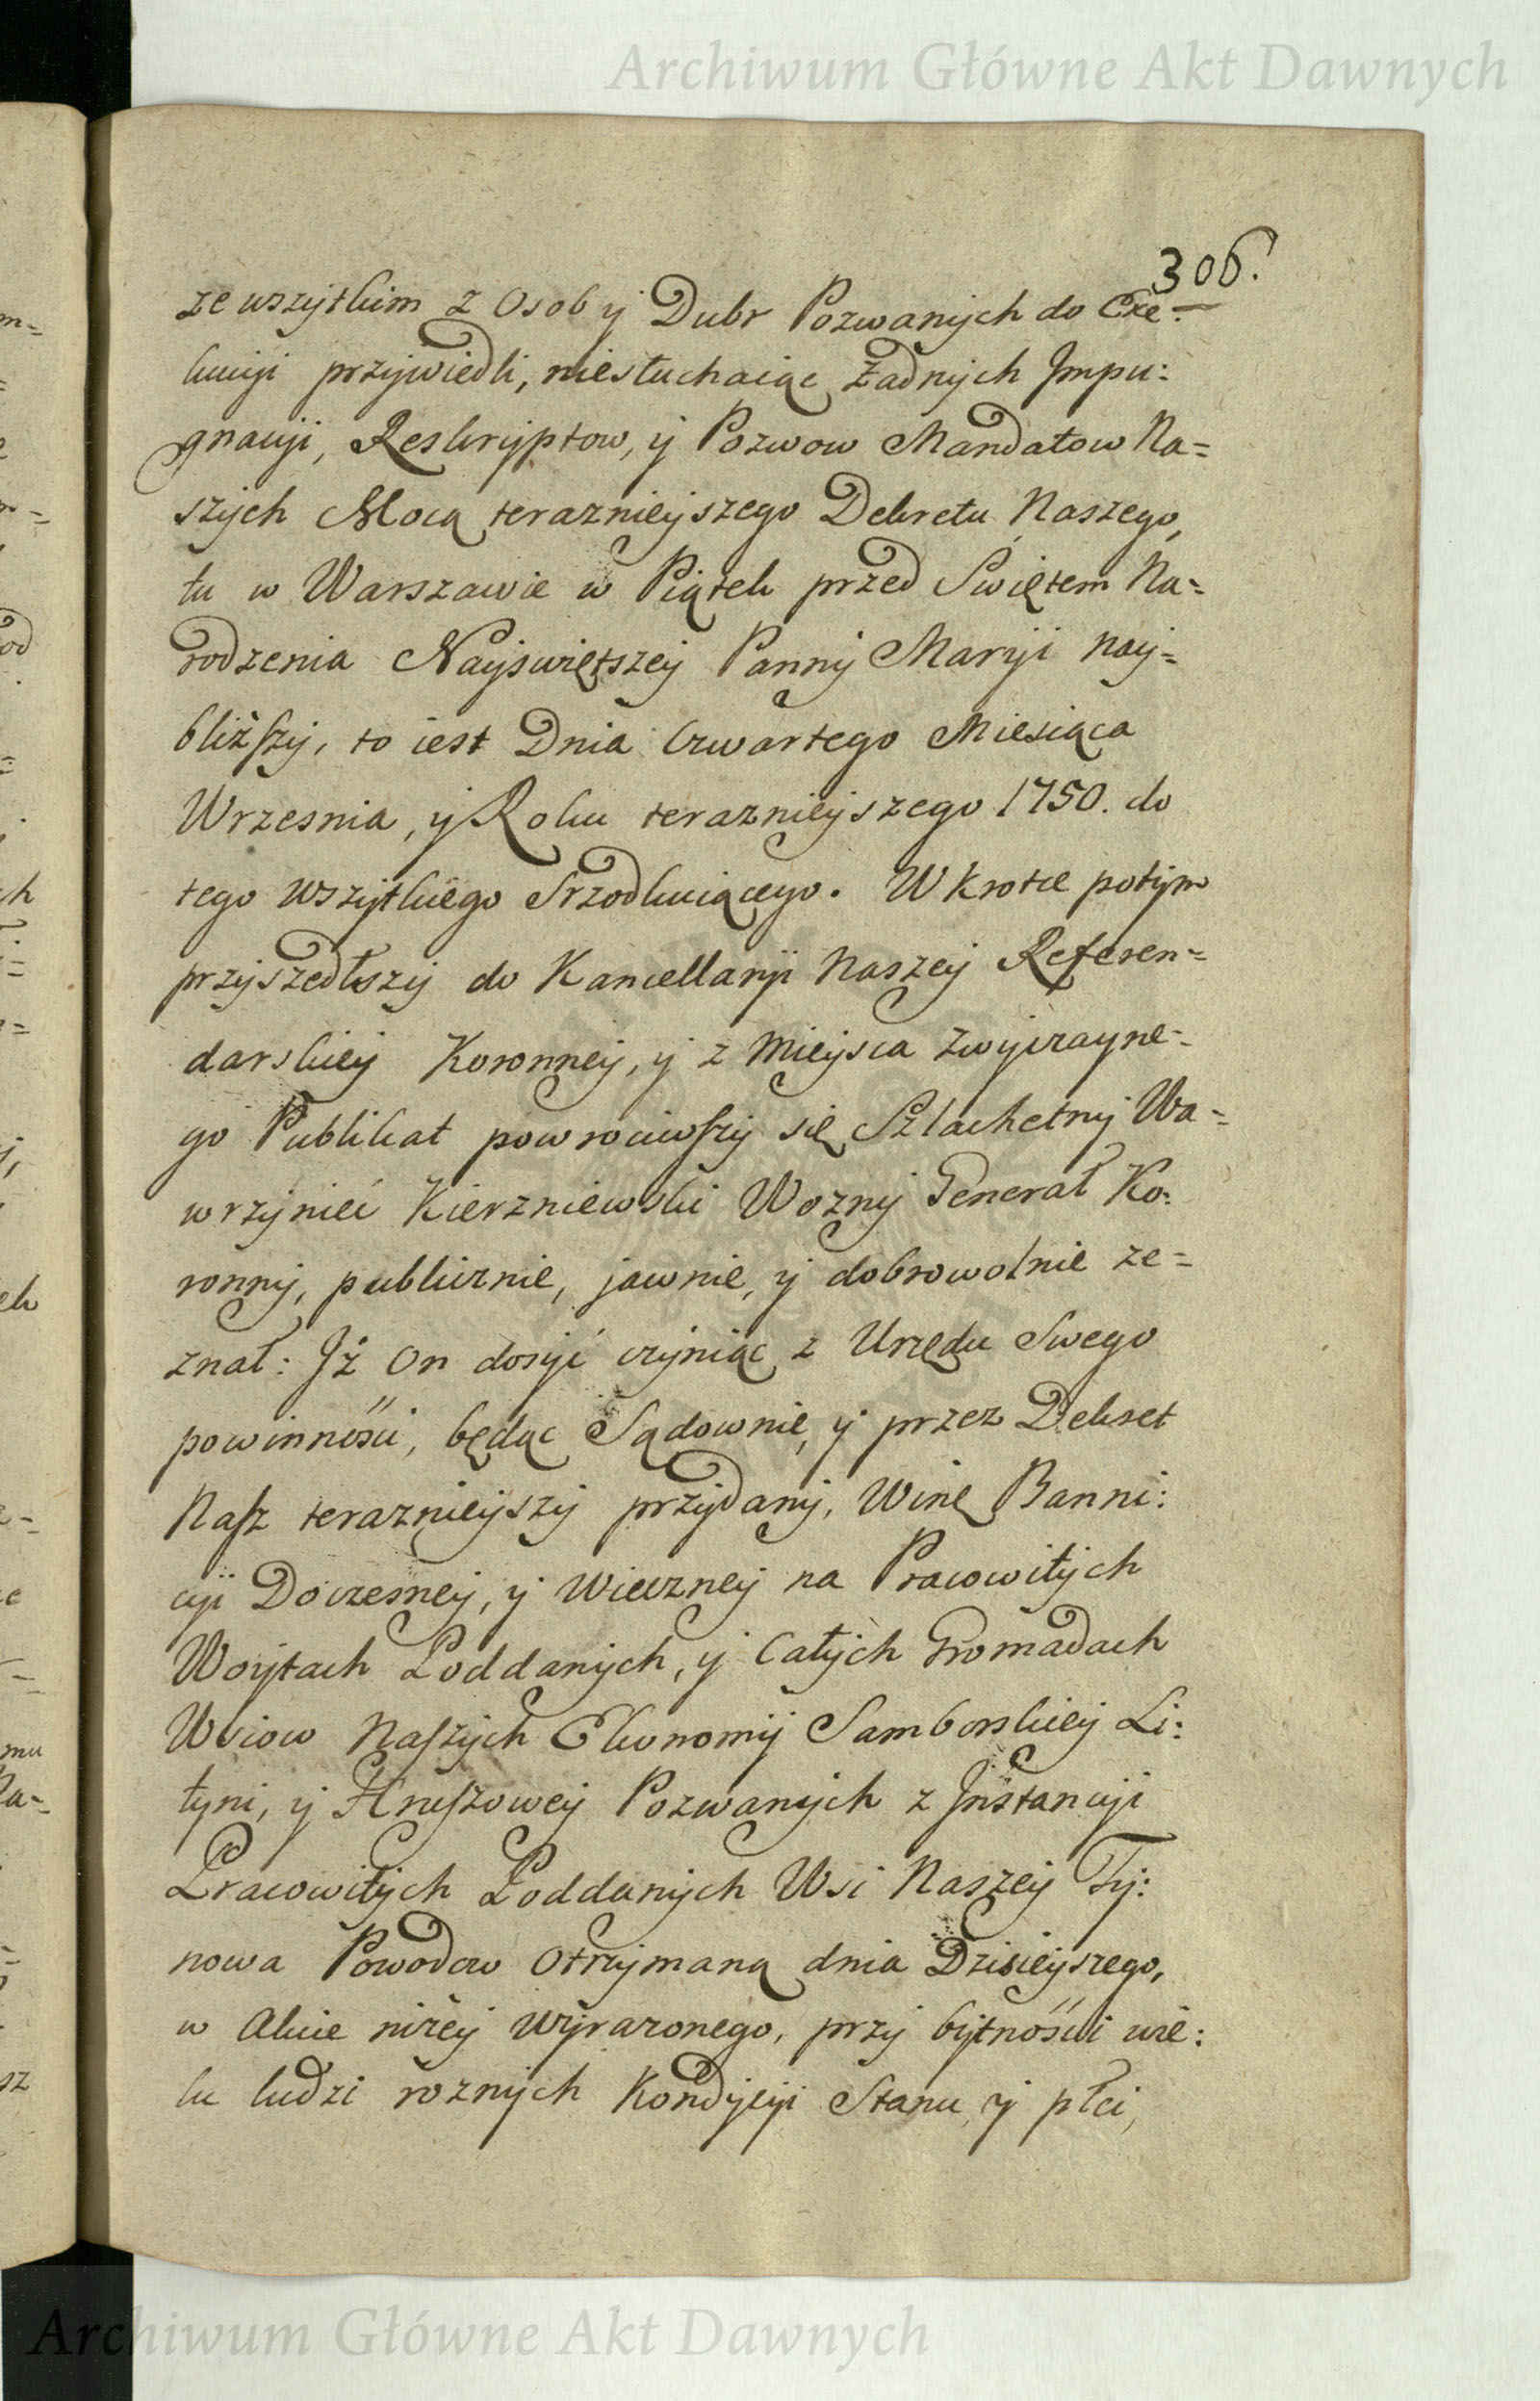 Archiwum Główne Akt Dawnych
306.
ze wszytkim z Osob y Dubr Pozwanych do Exe-
kucyi przywiedli, niesłuchaiąc żadnych Impu:
gnacyi, Reskryptow, y Pozwow Mandatow Na=
szych Mocą terazniejszego Dekretu Naszego,
tu w Warszawie w Piątek przed Swiętem Na=
rodzenia Nayswiętszey Panny Maryi nay=
bliższy, to iest Dnia Czwartego Miesiąca
Wrzesnia, y Roku terazniejszego 1750. do
tego wszytkiego Srzodkuiącego. W krotce potym
przyszedłszy do Kancellaryi Naszey Referen=
darskiey Koronney, y z Mieysca zwyczayne=
go Publikat powrociwszy się Szlachetny Wa=
wrzyniec Kierzniewski Wozny Generał Ko:
ronny, publicznie, jawnie, y dobrowolnie ze=
znał: Jż On dosyć czyniąc z Urzędu Swego
powinności, będąc Sądownie, y przez Dekret
Nasz teraznieyszy przydany, Winę Banni:
cyi Doczesney, y wieczney na Pracowitych
Woytach Poddanych, y Całych Gromadach
Wsiow Naszych Ekonomij Samborskiey Li:
tyni, y Hruszowey Pozwanych z Jnstancyi
Pracowitych Poddanych Wsi Naszey Ty:
nowa Powodow otrzymaną dnia Dzisieyszego,
w Akcie niżey wyrażonego, przy bytności wie:
lu ludzi roznych Kondycyi Stanu, y płci,
Archiwum Główne Akt Dawnych